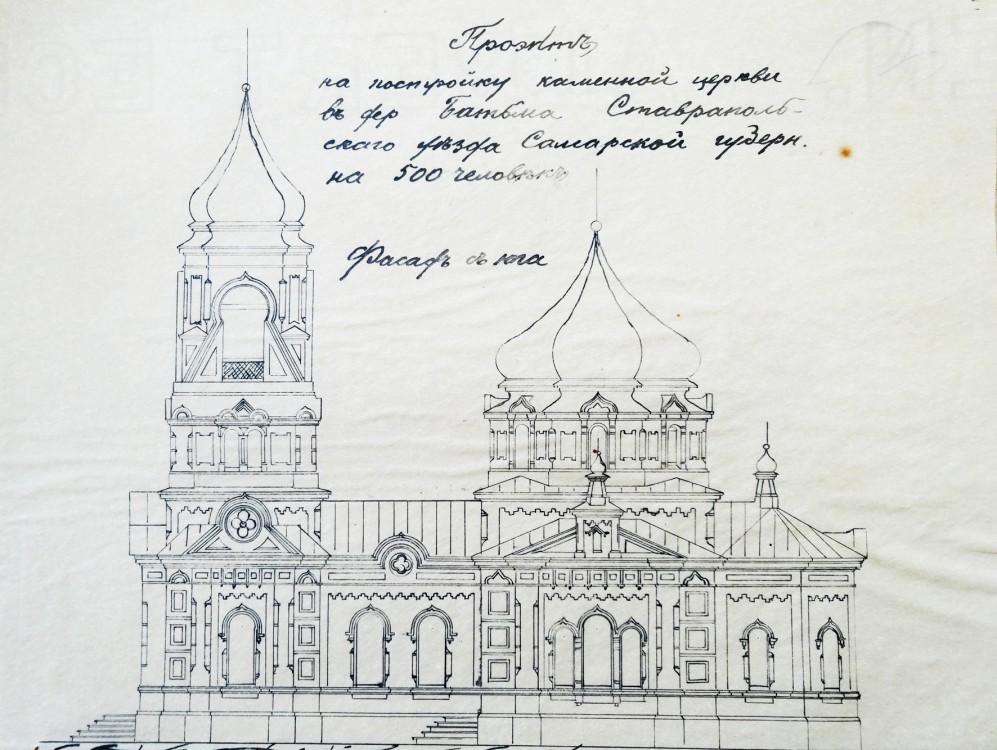 Проэктъ
на постройку каменной церкви
въ дер Батьма Ставраполь-
скаго уѣзда Самарской губерн.
на 500 человѣкъ
Фасадъ съ юга